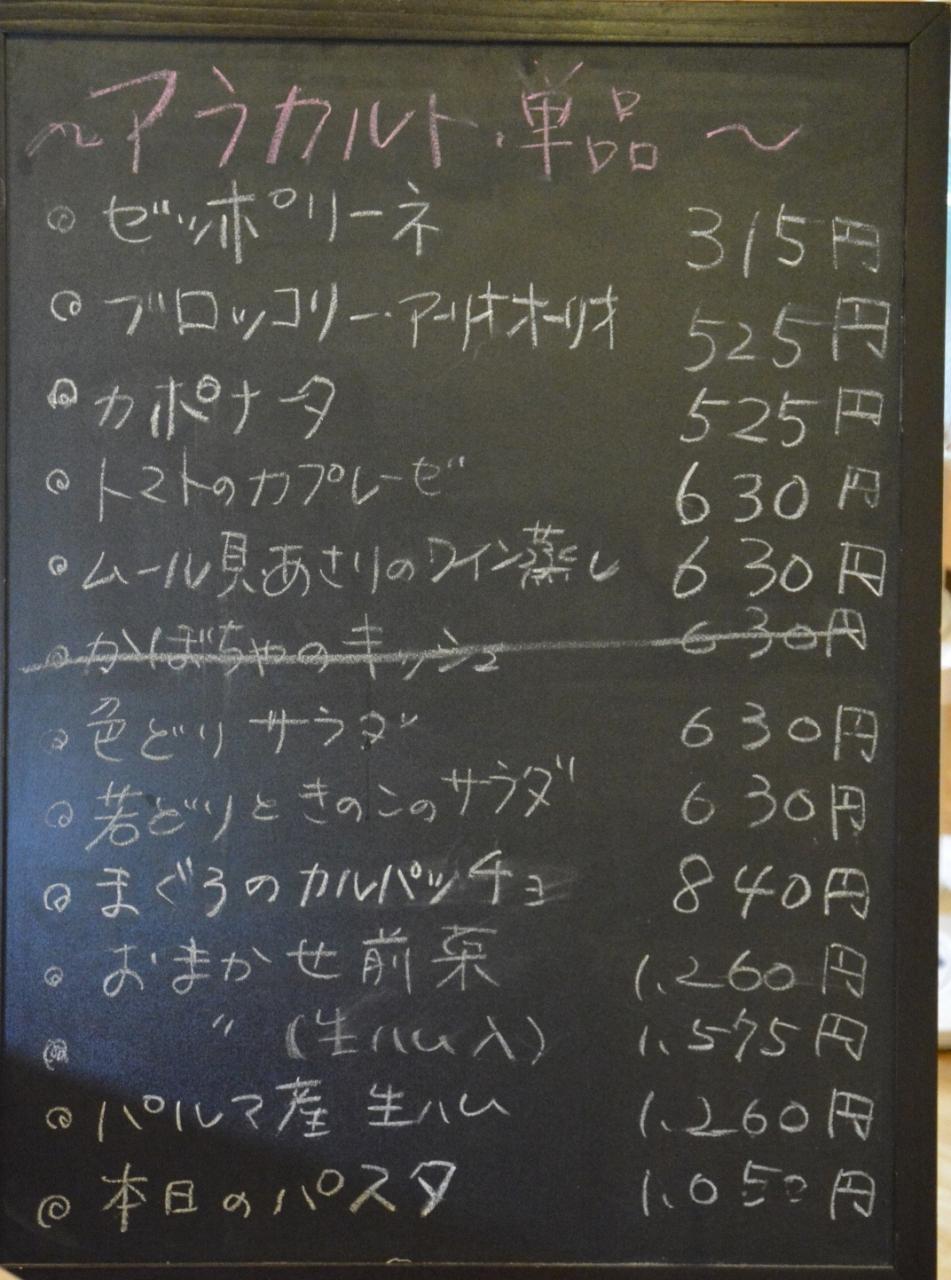 ～アラカルト・単品～
◎ ゼッポリーネ 315円
◎ ブロッコリー・アーリオオーリオ 525円
◎ カポナータ 525円
◎ トマトのカプレーゼ 630円
◎ ムール貝あさりのワイン蒸し 630円
◎ かぼちゃのキッシュ 630円
◎ 色どりサラダ 630円
◎ 若どりときのこのサラダ 630円
◎ まぐろのカルパッチョ 840円
◎ おまかせ前菜 1,260円
◎ 〃 (生ハム入) 1,575円
◎ パルマ産 生ハム 1,260円
◎ 本日のパスタ 1,050円